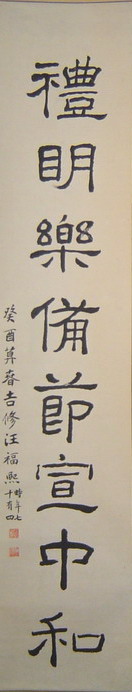 禮明樂備節宣中和
癸酉莫春吉修汪福熙時年七十有四